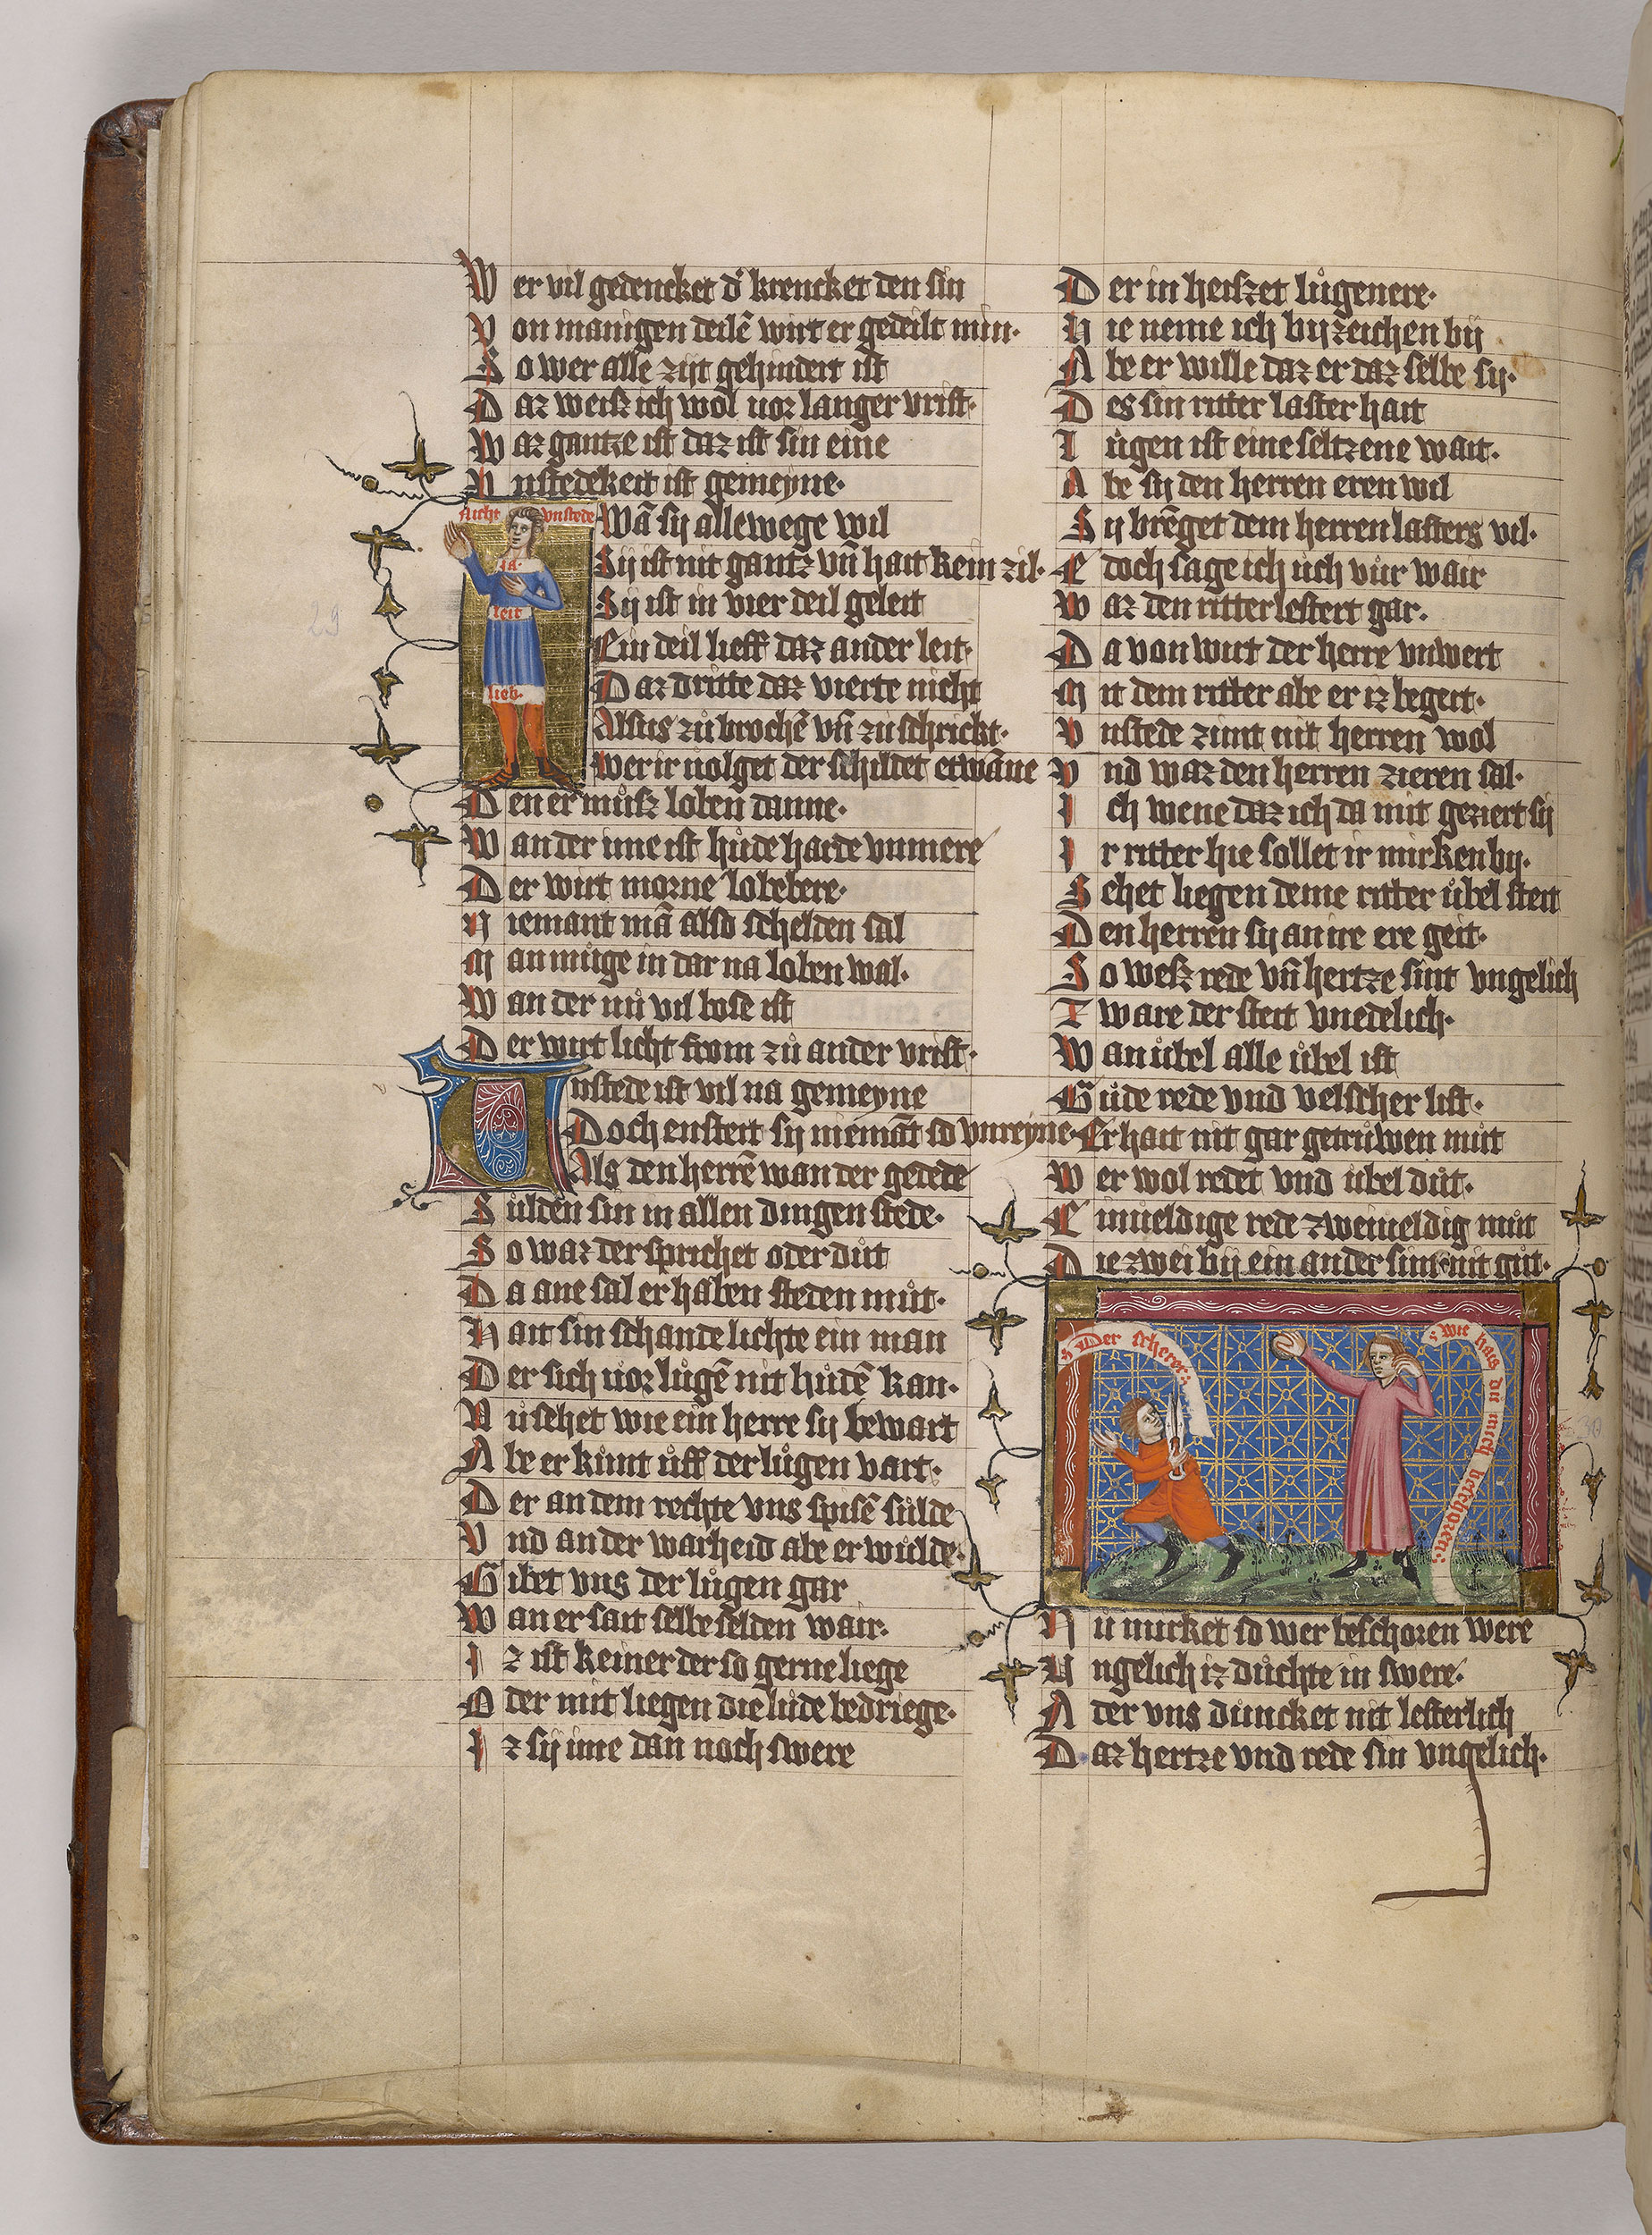 Wer vil gedencket d' krencket den sin
Von manigen deilē wirt er gedeilt min·
So wer alle zijt gehindert ist
Daz weisz ich wol vor langer vrist·
Waz gantze ist daz ist sin eine
Vnstedekeit ist gemeyne·
nicht vnstede
ia·
leit
lieb·
Wā sij allewege wil
Sij ist nit gantz vn̄ hait kein zil·
Sij ist in vier deil geleit
Ein deil lieff daz ander leit·
Daz dritte daz vierte nicht
Alsus zůbrochē vn̄ zuschrickt·
Wer ir volget der schildet etwāne
Den er můsz loben danne·
Wan der ime ist hůde harte vnmere
Der wirt morne lobebere·
Niemant mā also schelden sal
Man můge in dar na loben wal·
Wan der nů vil bose ist
Der wirt licht from zů ander vrist·
Vnstede ist vil na gemeyne
Doch enstert sij niemāt so vnreyne·
Als den herrē wan der getede
Sůlden sin in allen dingen stede·
So waz der sprichet oder důt
Da ane sal er haben steden můt·
Hait sin schande lichte ein man
Der sich vor lůgē nit hůdē kan·
Nů sehet wie ein herre sij bewart
Abe er kůmt ůff der lůgen vart·
Der an dem rechte vns spisē sůlde
Vnd an der warheid abe er wůlde·
Gibet vns der lůgen gar
Wan er sait selbe selden wair·
Iz ist keiner der so gerne liege
Oder mit liegen die lůde bedriege·
Iz sij ime dan noch swere
Der in heiszet lůgenere·
Hie neme ich bijzeichen bij
Abe er wille daz er daz selbe sij·
Des sin ritter laster hait
Lůgen ist eine seltzene wait·
Abe sij den herren eren wil
Sij brēget dem herren lasters vil·
Edoch sage ich ůch vůr wair
Waz den ritter lestert gar·
Da von wirt der herre vnwert
Mit dem ritter abe er iz begert·
Vnstede zimt nit herren wol
Vnd waz den herren zieren sal·
Ich wene daz ich da mit geziert sij
Ir ritter hie sollet ir mirken bij·
Sehet liegen deme ritter ůbel steit
Den herren sij an ire ere geit·
So wesz rede vn̄ hertze sint vngelich
Tware der steit vnedelich·
Wan ůbel alle ůbel ist
Gůde rede vnd velscher list·
Er hait nit gar getrůwen můt
Wer wol redet vnd ůbel důt·
Einueldige rede zweiueldig můt
Die zwei bij ein ander sint nit gůt·
Der scherer:
wie hais du mich beschoren:
Nů mirket so wer beschoren were
Vngelich iz důchte in swere·
Ader vns důncket nit lesterlich
Daz hertze vnd rede sin vngelich·